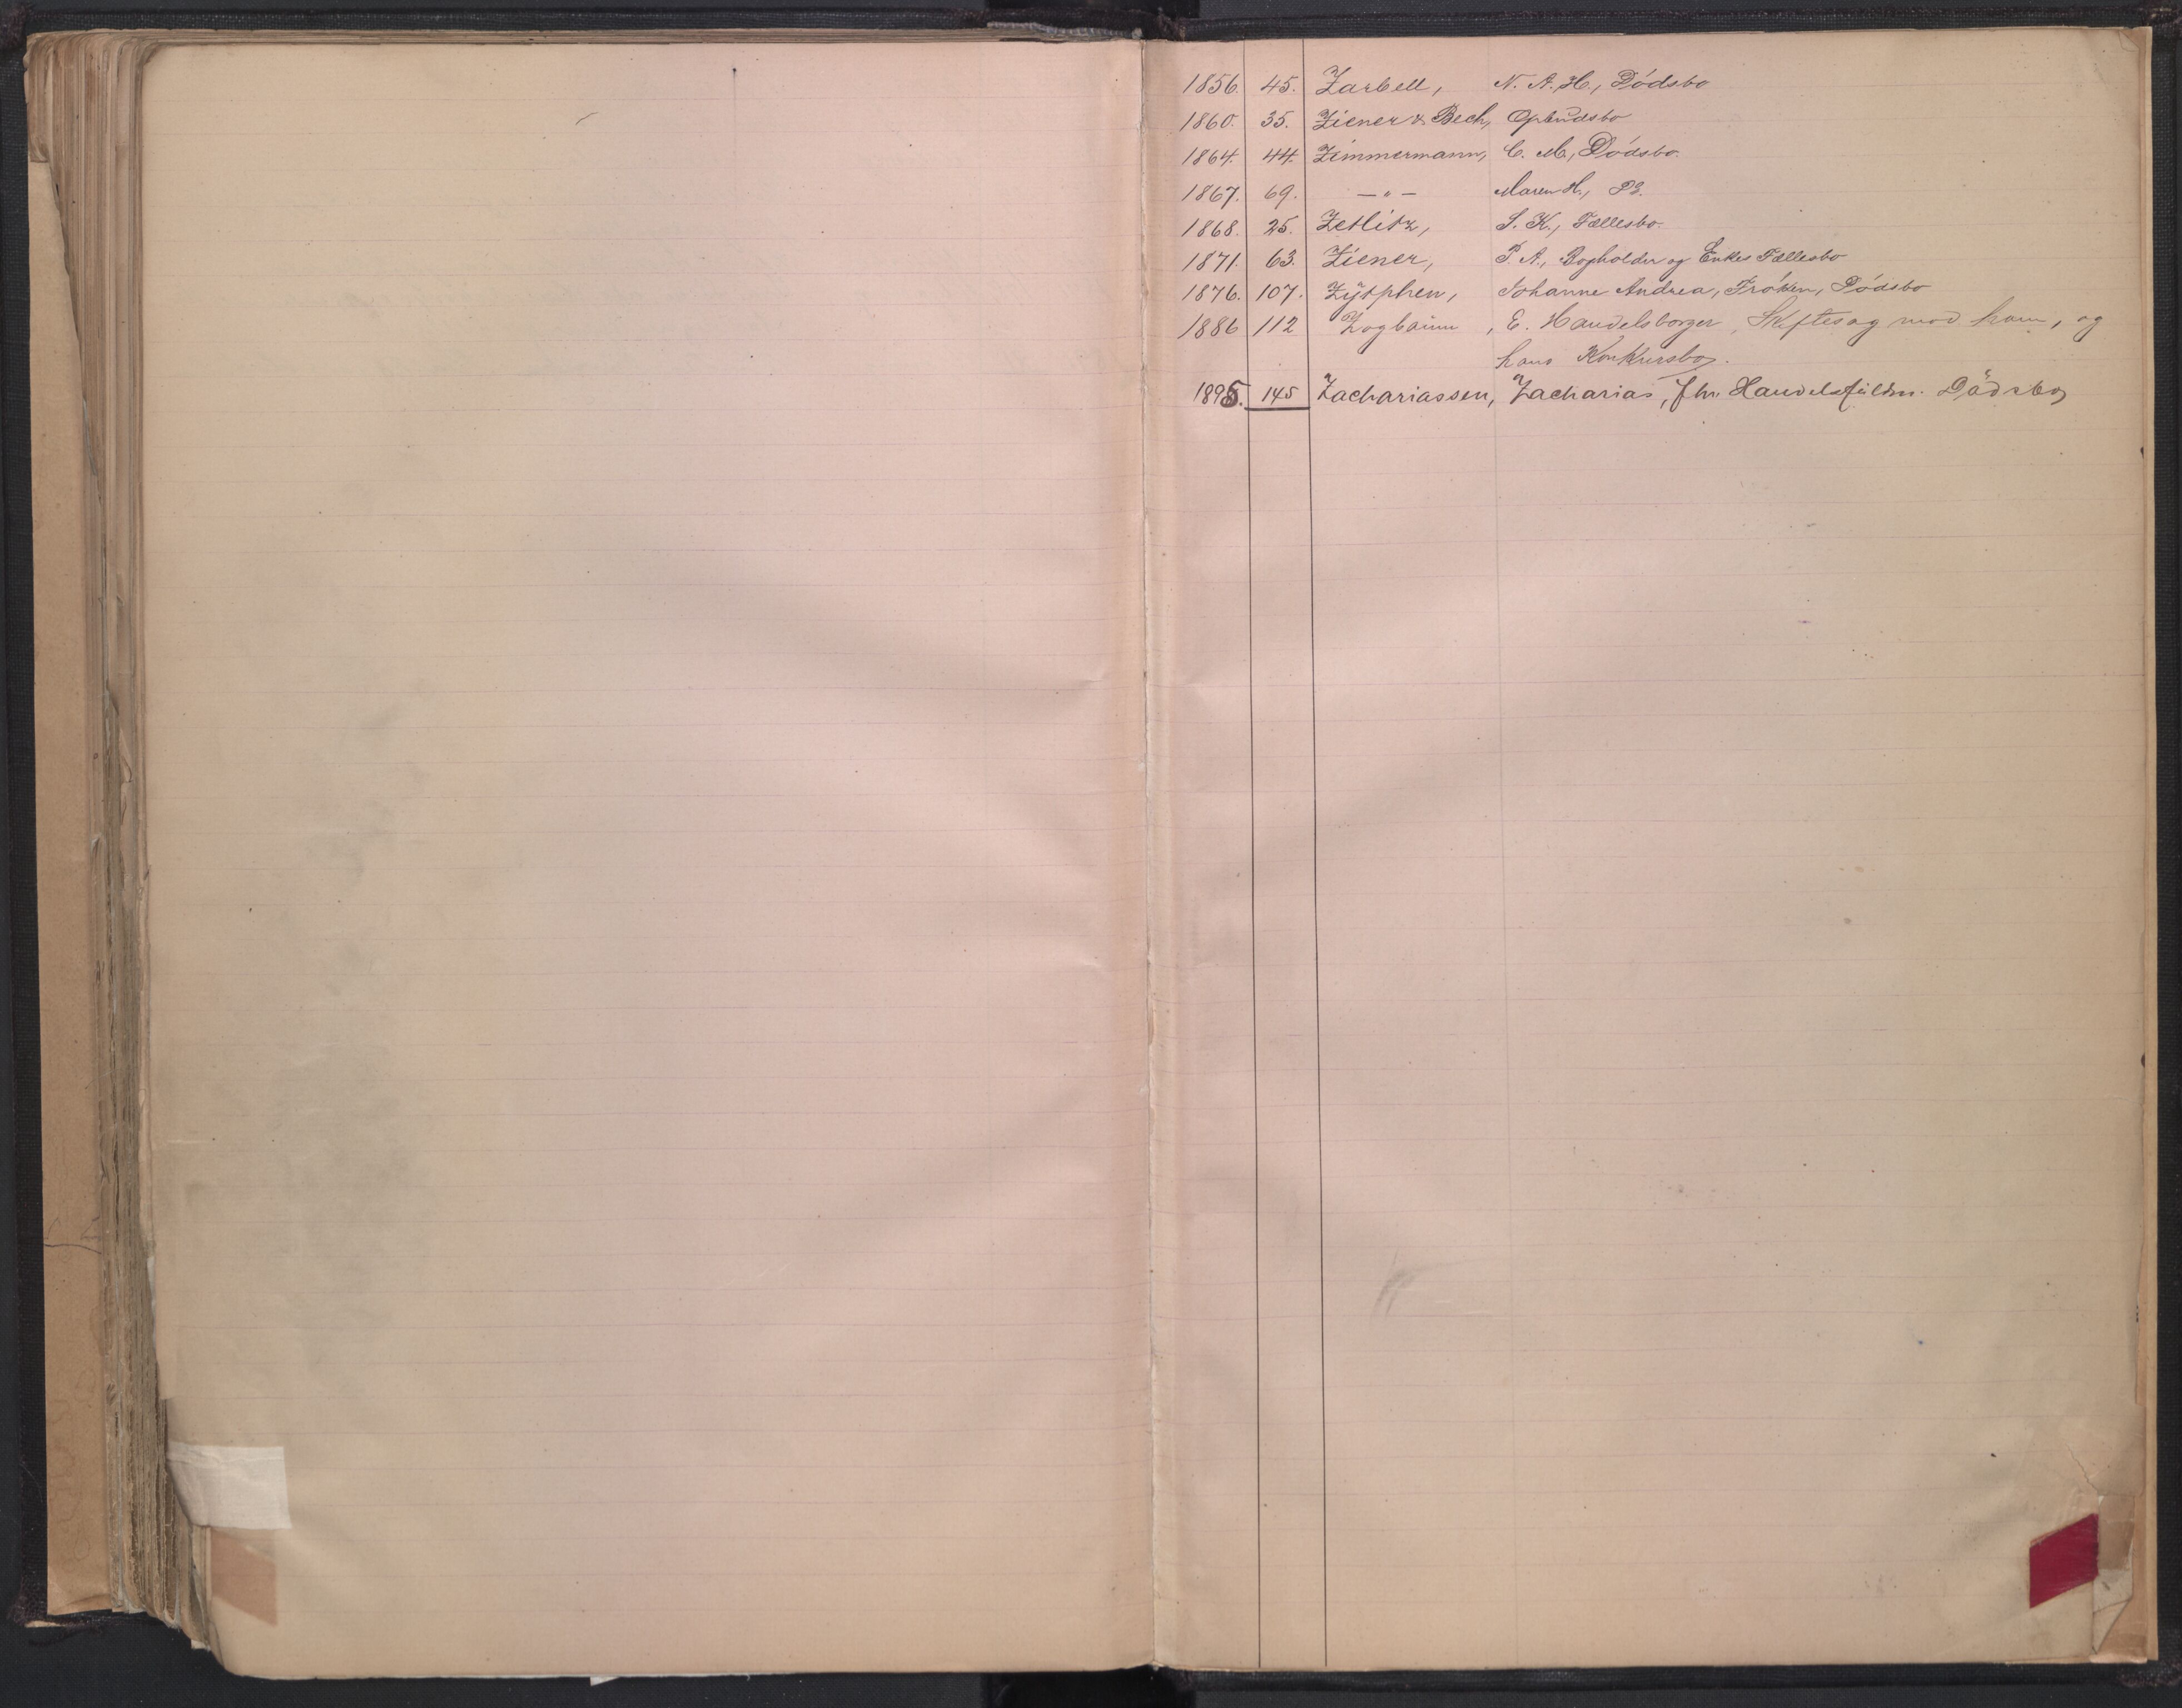 1856. 45. Zarbell, N. A. H., Dödsbo
1860. 35. Ziener & Bech, Opbudsbo
1864. 44. Zimmermann, C. M., Dödsbo.
1867. 69. — " — Maren H., Do.
1868. 25. Zetlitz, S. K., Fællesbo.
1871. 63. Ziener, P. A., Bogholder og Enkes Fællesbo
1876. 107. Zütphen, Johanne Andrea, Fröken, Dödsbo
1886 112 Zogbaum, E. Handelsborger, Skiftesag mod ham, og
hans Konkursbo.
1895. 145 Zachariassen, Zacharias, fhv. Handelsfuldm. Dödsbo